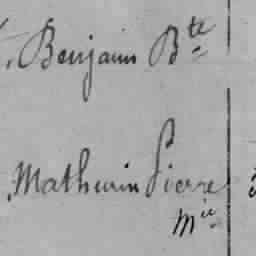 Benjamin Bte
Mathurin Pierre
Mie